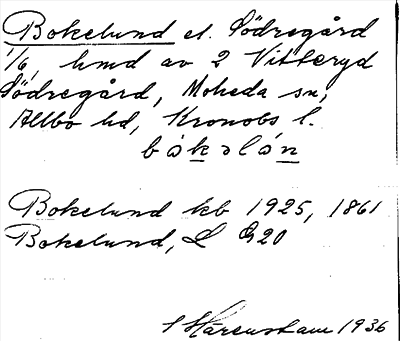 Bokelund el. Södregård
1/6, hmd av 2 Vitteryd
Södregård, Moheda sn,
Allbo hd, Kronobs l.
bòkəlón
Bokelund kb 1925, 1861
Bokelund, L G20
S Hårenstam 1936